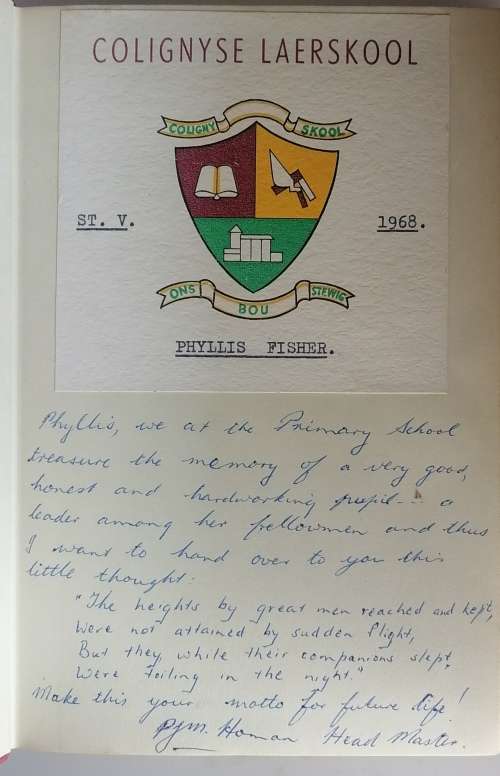 COLIGNYSE LAERSKOOL
COLIGNY SKOOL
ST. V. 1968.
ONS BOU STEWIG
PHYLLIS FISHER.
Phyllis, we at the Primary School
treasure the memory of a very good,
honest and hardworking pupil - a
leader among her fellowmen and thus
I want to hand over to you this
little thought:
"The heights by great men reached and kept,
Were not attained by sudden flight,
But they, while their companions slept,
Were toiling in the night."
Make this your motto for future life!
Homan Head Master.